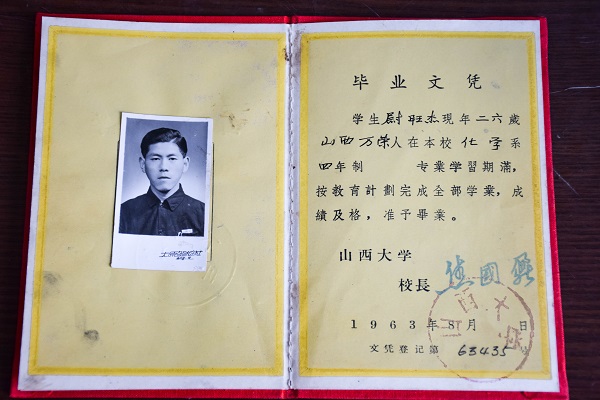 毕业文凭
学生尉旺杰现年二六歲
山西万荣人在本校化学系
四年制 专業学習期滿，
按教育計劃完成全部学業，成
績及格，准予畢業。
山西大学
校長 國
1963年8月 日
文凭登记第 63435